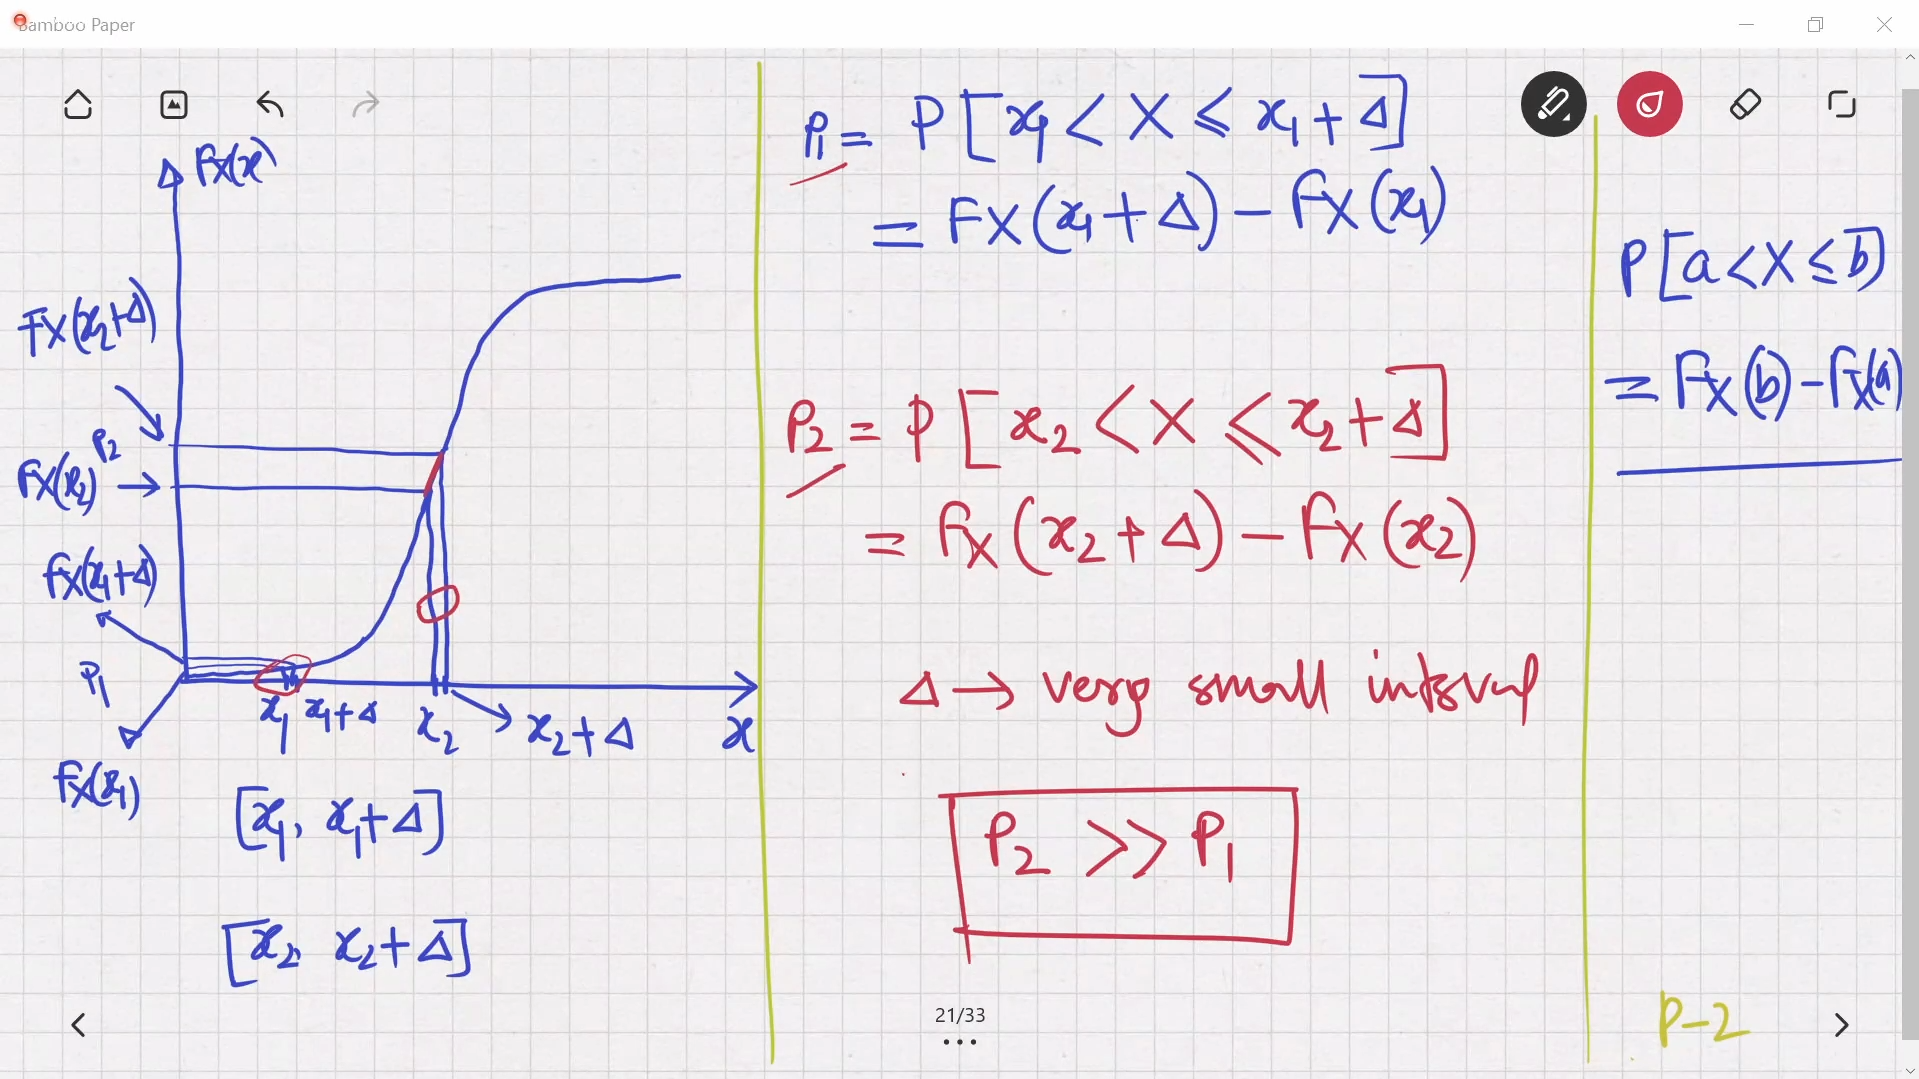 Bamboo Paper
Fx(x)
Fx(x2+Δ)
P2
Fx(x2)
Fx(x1+Δ)
P1
Fx(x1)
x1 x1+Δ x2 x2+Δ x
[x1, x1+Δ]
[x2, x2+Δ]
P1 = P[x1 < X ≤ x1+Δ]
= FX(x1+Δ) - FX(x1)
P2 = P[x2 < X ≤ x2+Δ]
= FX(x2+Δ) - FX(x2)
Δ → very small interval
P2 >> P1
P[a < X ≤ b]
= FX(b) - FX(a)
21/33
P-2